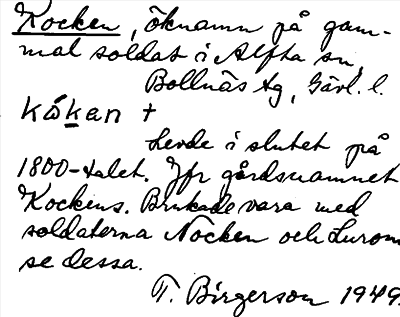 Kocken, öknamn på gam-
mal soldat i Alfta sn,
Bollnäs tg, Gävl. l.
kåkan +
Levde i slutet på
1800-talet. Jfr gårdsnamnet
Kockens. Brukade vara med
soldaterna Nocken och Lurom
se dessa.
T. Birgerson 1949.